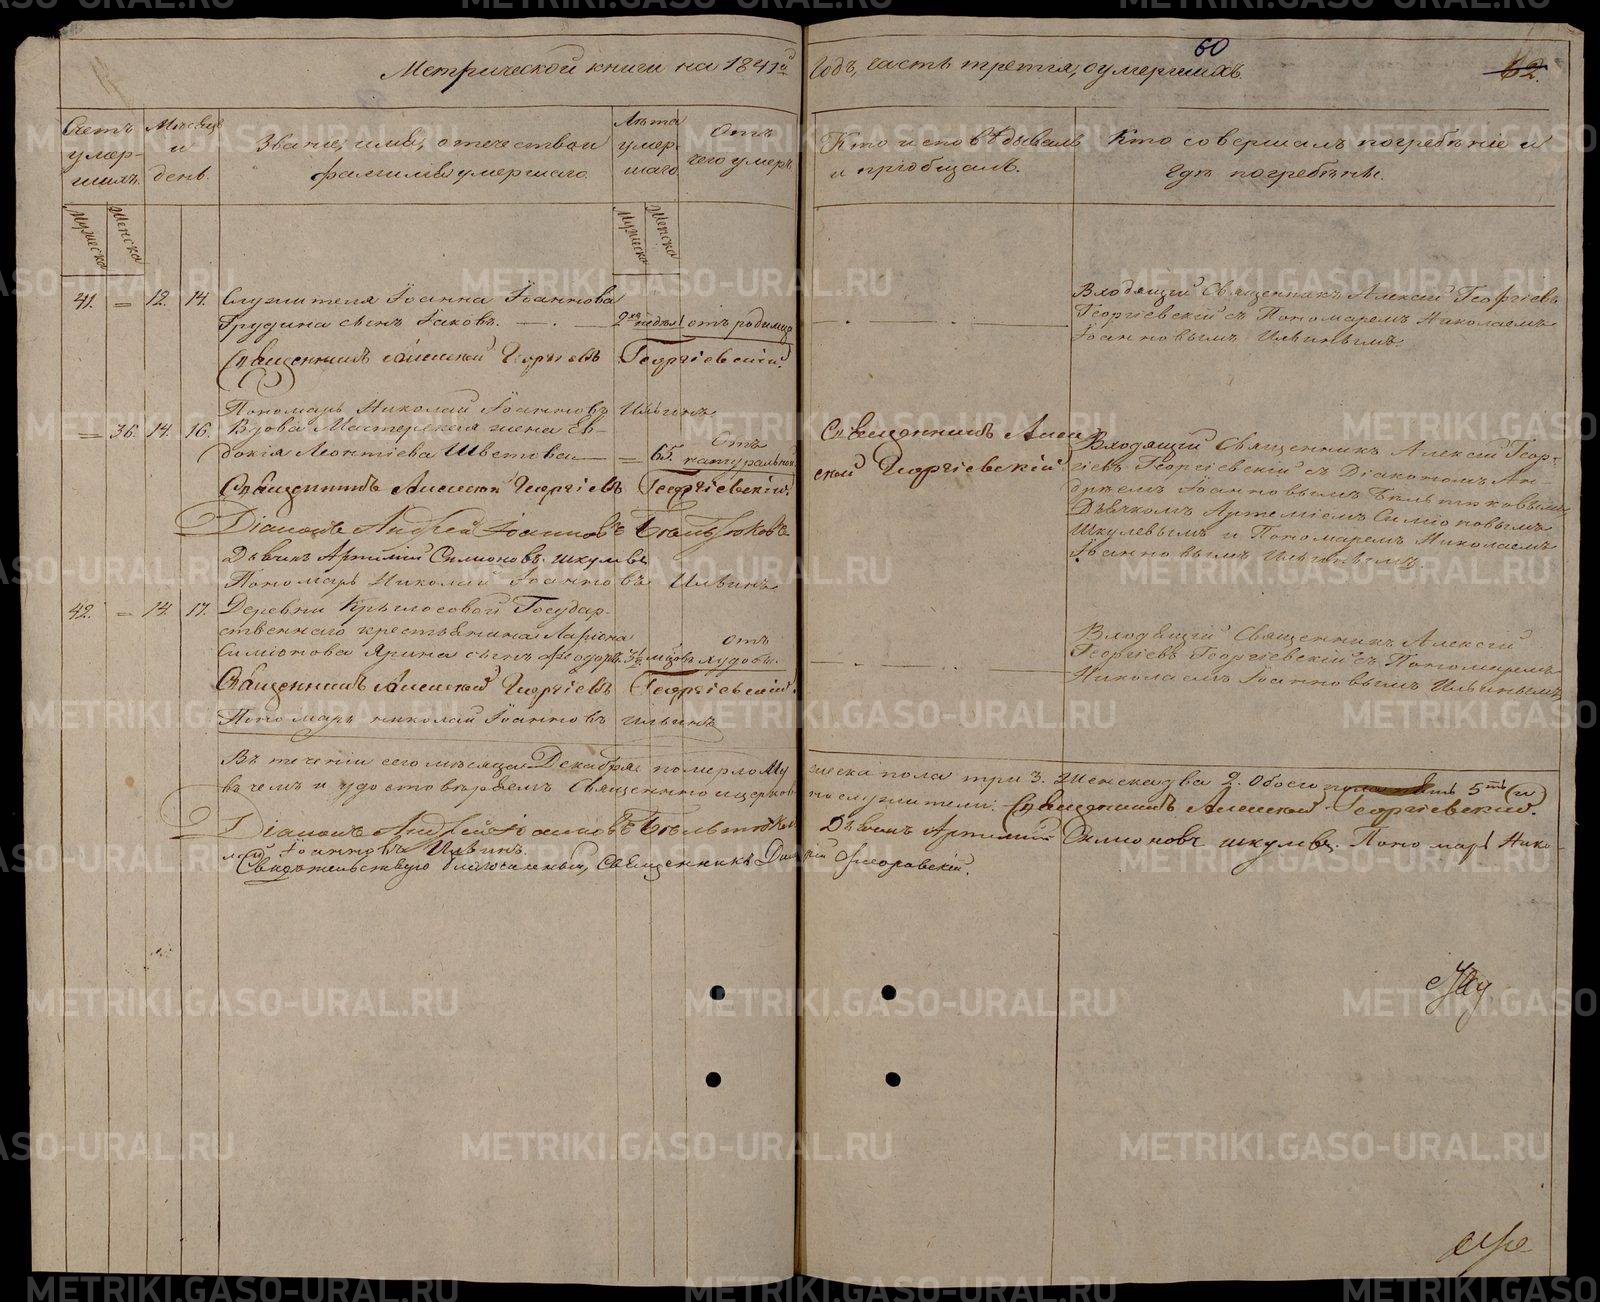 60
62.
Метрической книги на 1841й Годъ, часть третія, о умершихъ.
Счетъ умер-шихъ.
Мѣсяцъ и день.
Званіе, имя, отечество и фамилія умершаго.
Лѣта умер-шаго.
Отъ чего умеръ.
Кто исповѣдывалъ и пріобщалъ.
Кто совершалъ погребѣніе и гдѣ погребѣнъ.
Мужеска
Женска
Мужеска
Женска
41. = 12. 14. Служителя Іоанна Іоаннова
Грудина сынъ Іаковъ. 2хъ недѣл отъ родимца
Священникъ Алексѣй Георгіевъ Георгіевскій.
Пономарь Николай Іоанновъ Ильинъ
Входящій Священникъ Алексій Георгіевъ
Георгіевскій съ Пономаремъ Николаемъ
Іоанновымъ Ильинымъ.
= 36. 14. 16. Вдова Мастерская жена Ев-
докія Леонтіева Швецова = 65. отъ натуральной
Священникъ Алексѣй Георгіевъ Георгіевскій.
Діаконъ Андрей Іоанновъ Бѣльтюковъ
Дьячекъ Артемій Симіоновъ Шкулевъ
Пономарь Николай Іоанновъ Ильинъ
Священникъ Алек
сѣй Георгіевскій
Входящій Священникъ Алексій Геор-
гіевъ Георгіевскій съ Діакономъ Ан-
дреемъ Іоанновымъ Бѣльтюковымъ,
Дьячкомъ Артеміемъ Симіоновымъ
Шкулевымъ и Пономаремъ Николаемъ
Іоанновымъ Ильинымъ.
42. = 14. 17. Деревни Крылосовой Государ-
ственнаго крестьянина Ларіона
Симіонова Ярина сынъ Ѳеодоръ. мцовъ отъ худобы.
Священникъ Алексѣй Георгіевъ Георгіевскій.
Пономарь Николай Іоанновъ Ильинъ
Входящій Священникъ Алексій
Георгіевъ Георгіевскій съ Пономаремъ
Николаемъ Іоанновымъ Ильинымъ
Въ теченіи сего мѣсяца Декабря померло му жеска пола три 3. Женска два 2. Обоего пола 5ть
въ чемъ и удостовѣряемъ Священно и церков но служители: Священникъ Алексѣй Георгіевскій.
Діаконъ Андрей Іоанновъ Бѣльтюковъ Дьячекъ Артемій Симіоновъ Шкулевъ. Пономарь Нико-
лай Іоанновъ Ильинъ.
Свидѣтельствую благочинный, Священникъ